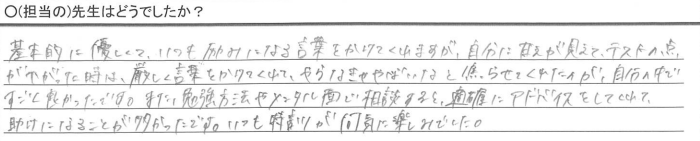 ○(担当の)先生はどうでしたか？
基本的に優しくて、いつも励みになる言葉をかけてくれますが、自分に甘えが見えて、テストの点
が下がった時は、厳しく言葉をかけてくれて、やらなきゃやばいなと焦らせてくれたのが、自分の中で
すごく良かったです。また、勉強方法やメンタル面で相談すると、適確にアドバイスをしてくれて、
助けになることが多かったです。いつも特訓が何気に楽しみでした。